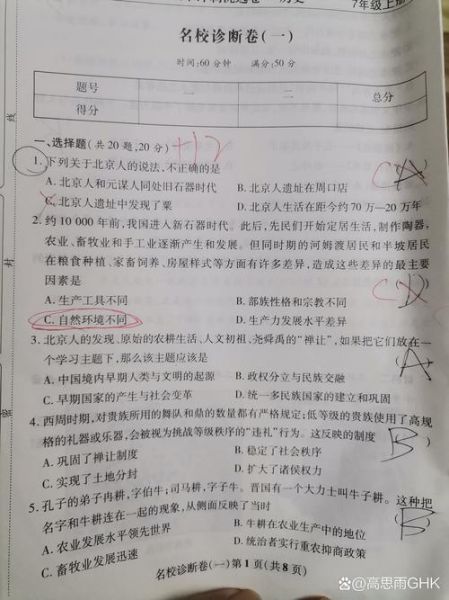 7年级上册
名校诊断卷(一)
时间:60分钟 满分:50分
题号 一 二 总分
得分
一、选择题(共20题,20分) +12
1. 下列关于北京人的说法,不正确的是 C (A)
A. 北京人和元谋人同处旧石器时代 B. 北京人遗址在周口店
C. 北京人遗址中发现了粟 D. 北京人生活在距今约70万—20万年
2. 约10 000年前,我国进入新石器时代。此后,先民们开始定居生活,制作陶器,
农业、畜牧业和手工业逐渐产生和发展。但同时期的河姆渡居民和半坡居民
在粮食种植、家畜饲养、房屋样式等方面有许多差异,造成这些差异的最主要
因素是 C (D)
A. 生产工具不同 B. 部族性格和宗教不同
C. 自然环境不同 D. 生产力发展水平差异
3. 北京人的发现、原始的农耕生活、人文初祖、尧舜禹的“禅让”,如果把它们放在一
个学习主题下,那么该主题应该是 (A)
A. 中国境内早期人类与文明的起源 B. 政权分立与民族交融
C. 早期国家的产生与社会变革 D. 统一多民族国家的建立和巩固
4. 西周时期,对贵族所用的舞队和鼎的数量都有严格规定;低等级的贵族使用了高规
格的礼器或乐器,会被视为挑战等级秩序的“违礼”行为。这反映的制度 (B)
A. 巩固了禅让制度 B. 稳定了社会秩序
C. 实现了土地分封 D. 扩大了诸侯权力
5. 孔子的弟子冉耕,字伯牛;司马耕,字子牛。晋国有一个大力士叫牛子耕。这种把
名字和牛耕连在一起的现象,从侧面反映了当时 (B)
A. 农业发展水平领先世界 B. 牛耕在农业生产中的地位
C. 畜牧业发展迅速 D. 统治者实行重农抑商政策
名校诊断卷(一)第1页(共8页)
线
封
密
@高思雨GHK